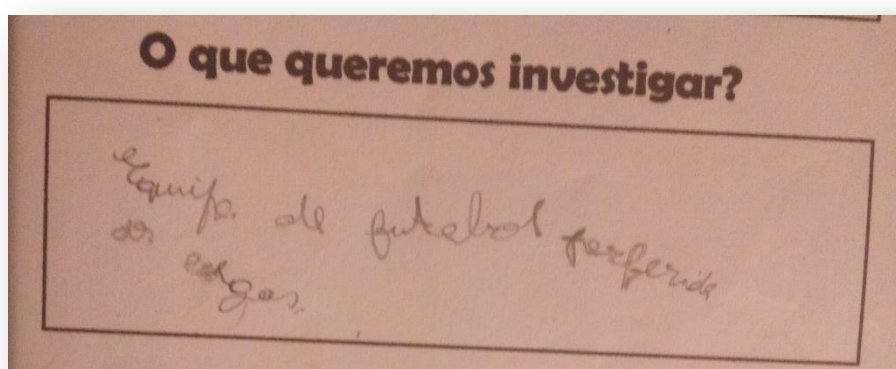 O que queremos investigar?
Equipa de futebol perferida
dos